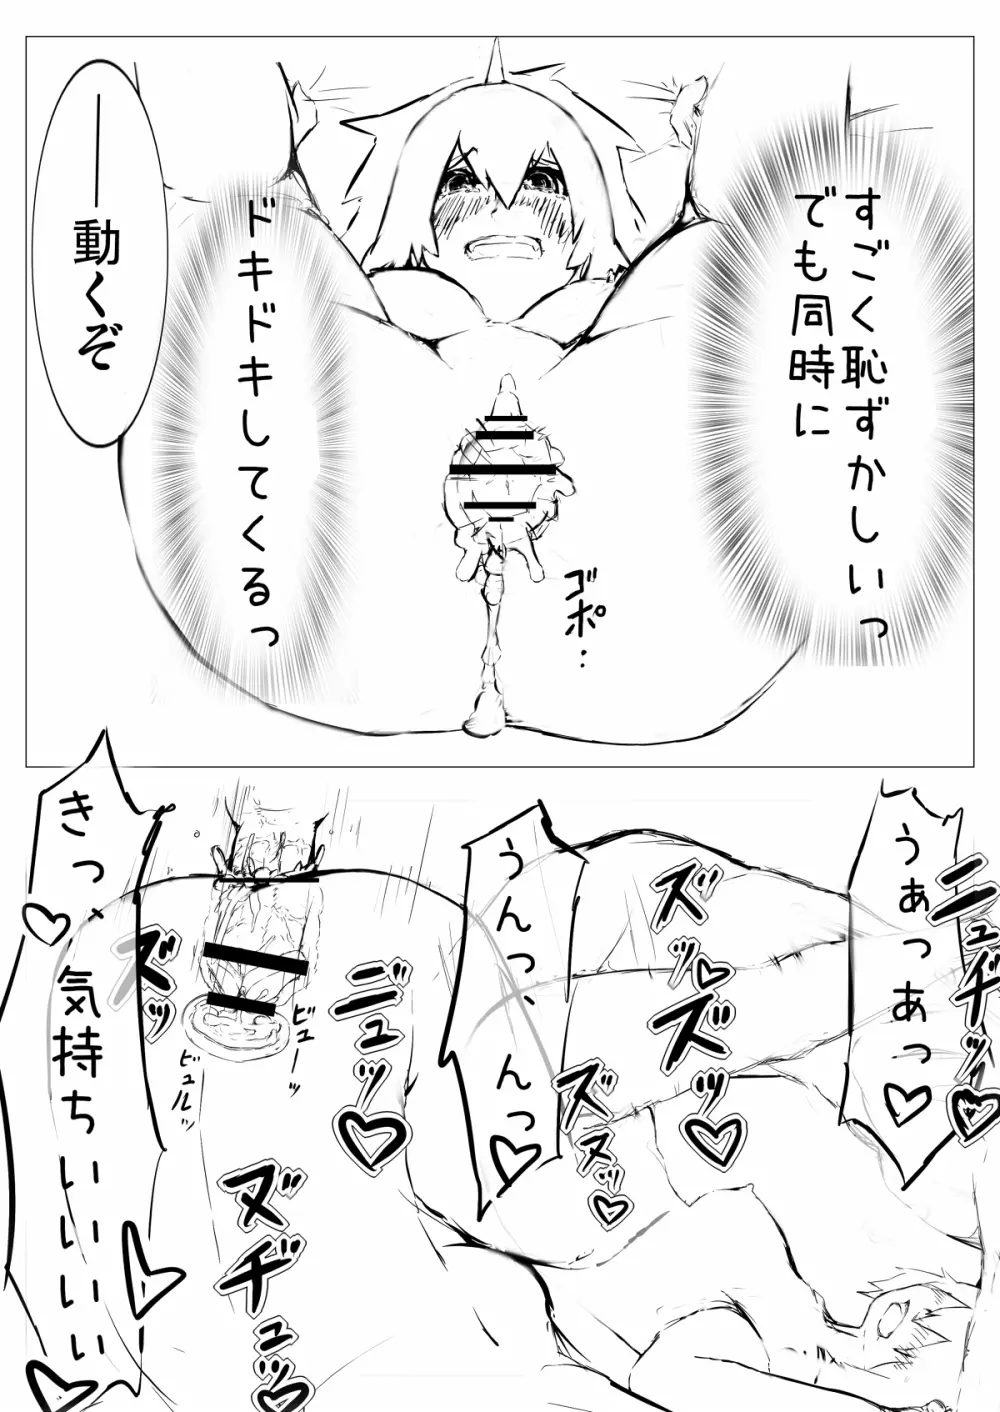 すごく恥ずかしいっ
でも同時に
ドキドキしてくるっ
――動くぞ
ゴポ・・
うぁっあっ♡
ニュヂッ♡
ズッ
ズッ♡
ズヌッ♡
うんっ、
んっ♡
ニュッ♡
ビューッ
ビュルッ
ズッ
ヌヂュッ♡
きっ、♡
気持ちいいいいぃ♡